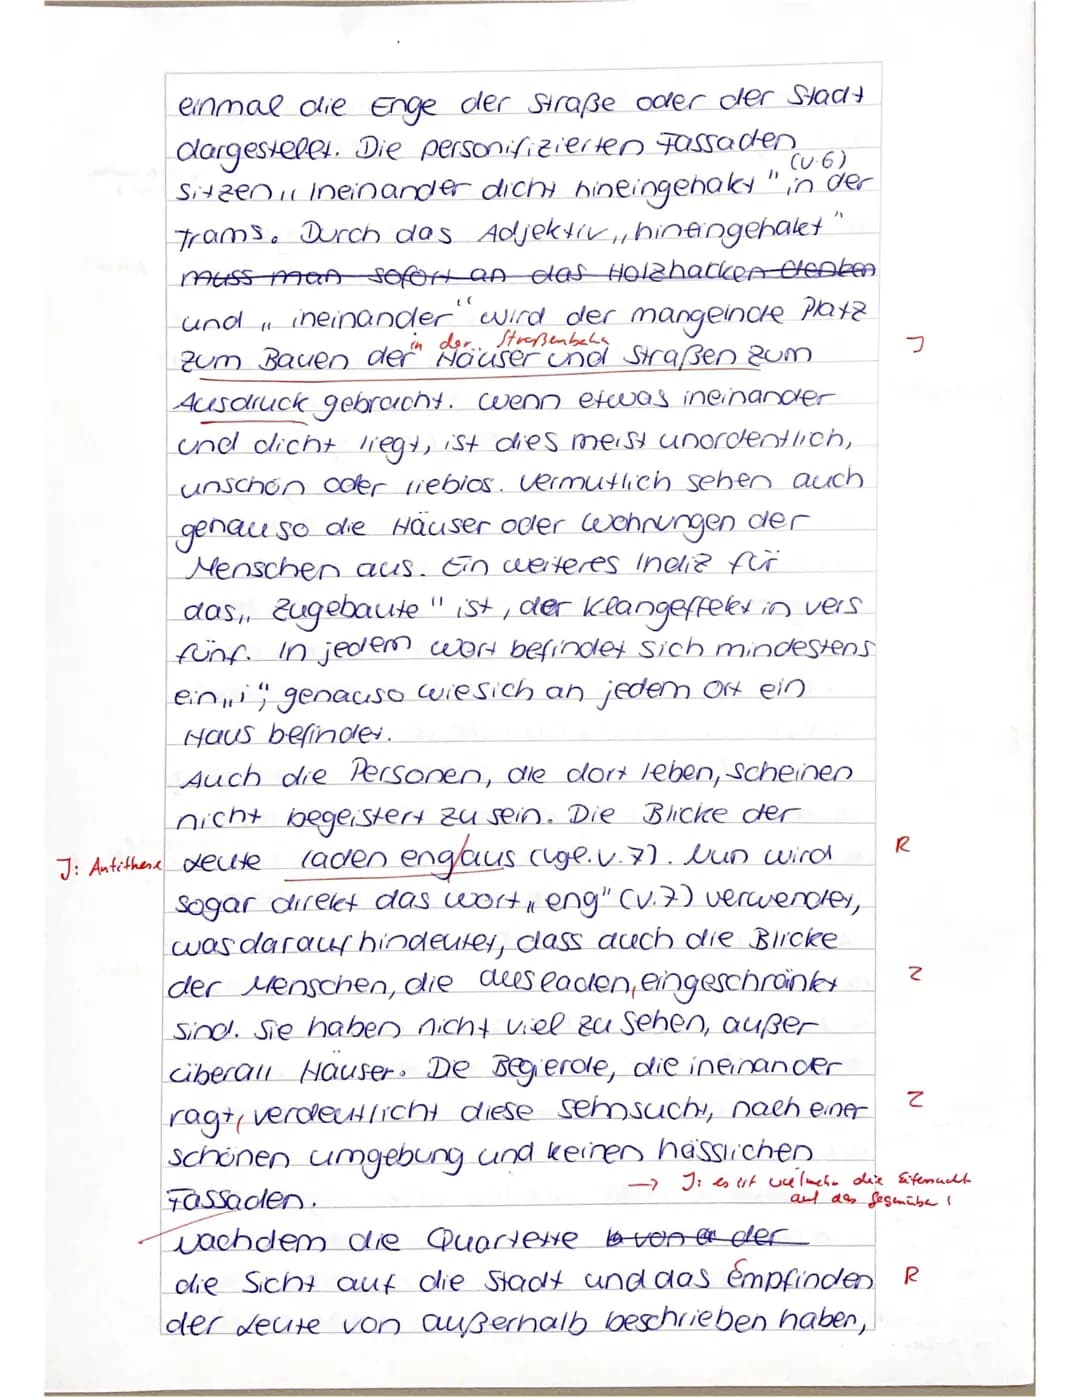 einmal die Enge der Straße oder der Stadt
dargestellt. Die personifizierten Fassaden
(V.6)
sitzen „Ineinander dicht hineingehakt" in der
Trams. Durch das Adjektiv „hineingehakt"
muss man sofort an das Holzhacken denken
und „ineinander" wird der mangelnde Platz
in der Straßenbahn
zum Bauen der Häuser und Straßen zum J
Ausdruck gebracht. Wenn etwas ineinander
und dicht liegt, ist dies meist unordentlich,
unschön oder lieblos. Vermutlich sehen auch
genau so die Häuser oder Wohnungen der
Menschen aus. Ein weiteres Indiz für
das „Zugebaute" ist, der Klangeffekt in Vers
fünf. In jedem Wort befindet sich mindestens
ein „i", genauso wie sich an jedem Ort ein
Haus befindet.
Auch die Personen, die dort leben, scheinen
nicht begeistert zu sein. Die Blicke der
J: Antithese Leute laden eng/aus (vgl. V.7). Nun wird R
sogar direkt das Wort „eng" (V.7) verwendet,
was darauf hindeutet, dass auch die Blicke
der Menschen, die ausladen, eingeschränkt Z
sind. Sie haben nicht viel zu sehen, außer
überall Häuser. De Begierde, die ineinander
ragt, verdeutlicht diese Sehnsucht, nach einer Z
schönen Umgebung und keinen hässlichen
Fassaden.
→ J: es ist vielmehr die Eifersucht
auf das Gegenüber!
Nachdem die Quartette von der
die Sicht auf die Stadt und das Empfinden R
der Leute von außerhalb beschrieben haben,